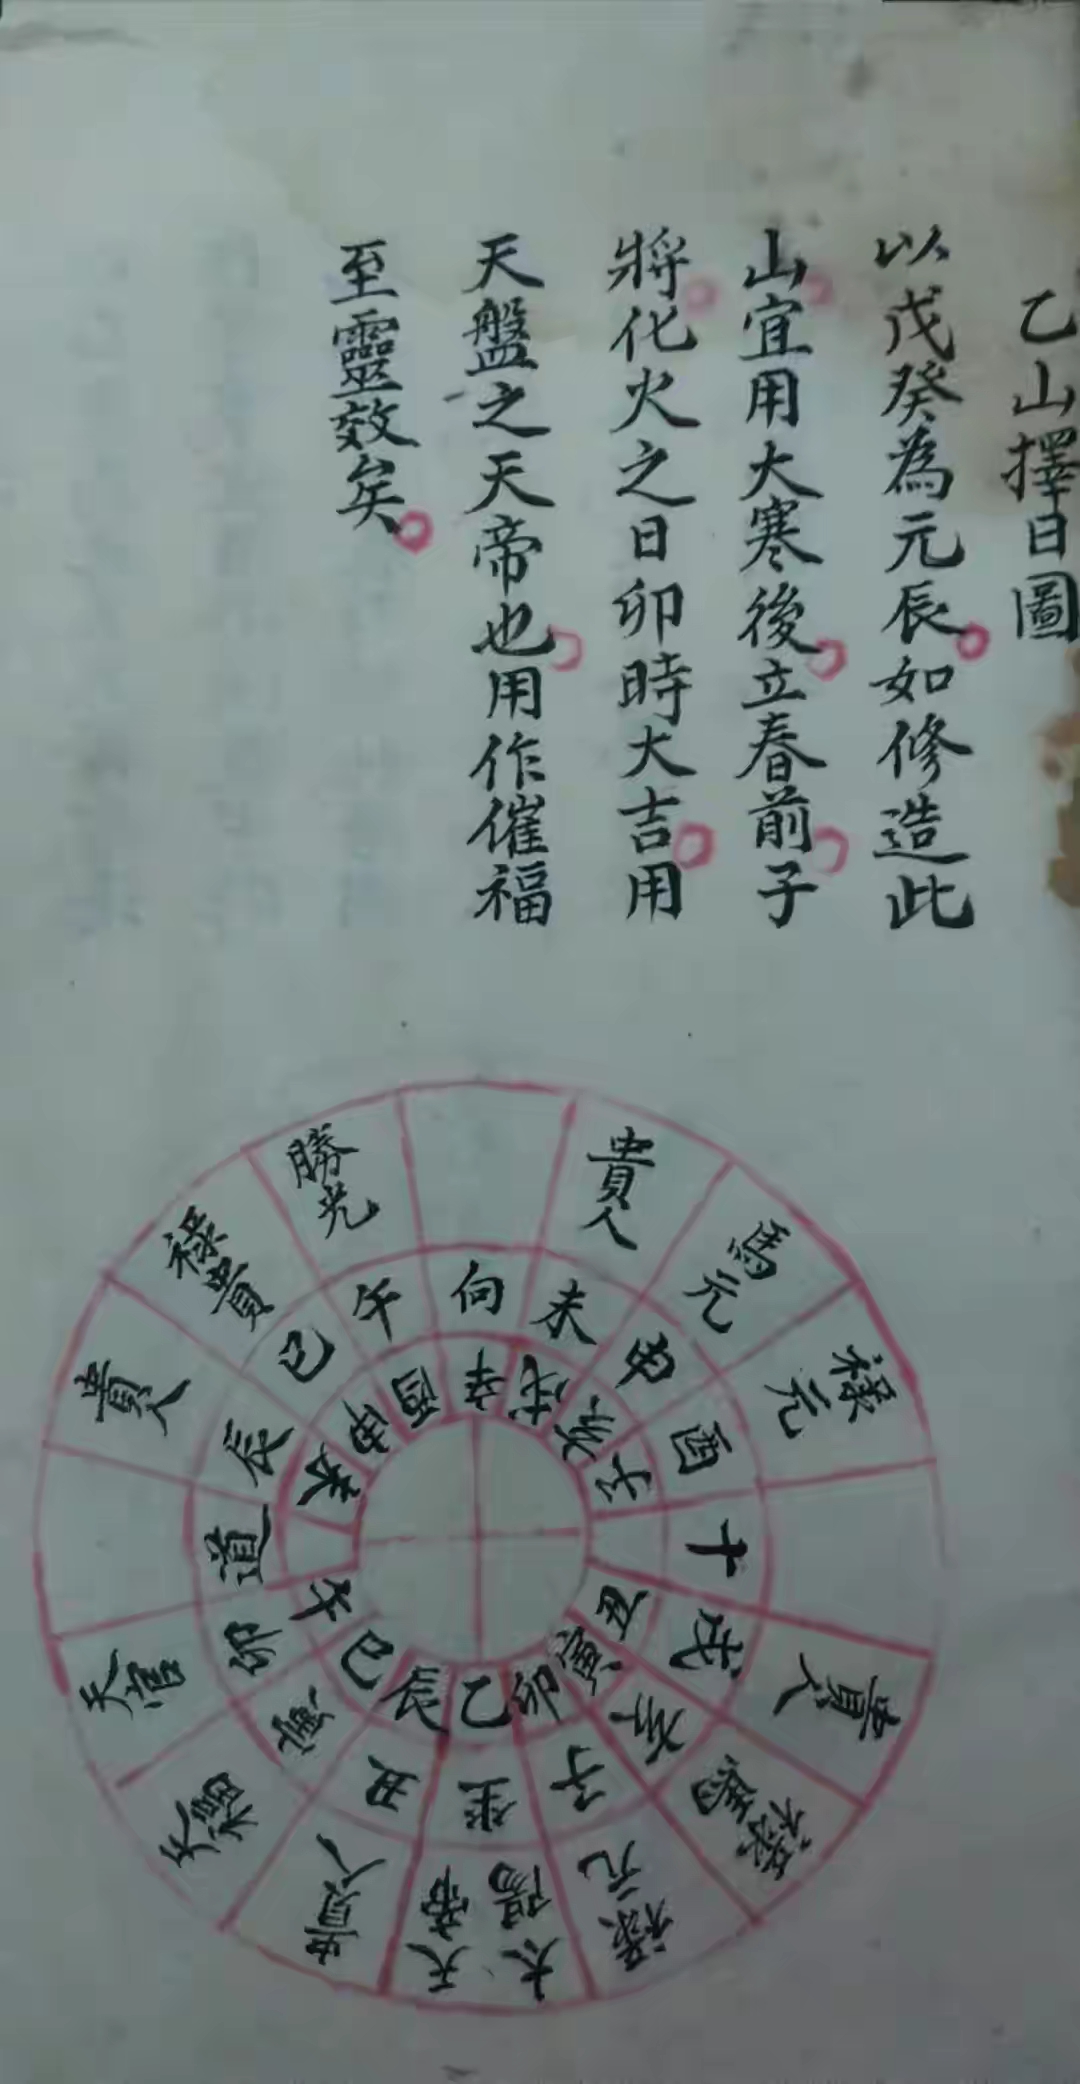 乙山擇日圖
以戊癸為元辰如修造此
山宜用大寒後立春前子
將化火之日卯時大吉用
天盤之天帝也用作催福
至靈效矣
貴人
馬元
祿元
貴人
祿馬
祿元
太陽
天帝
貴人
天福
天官
貴人
祿貴
勝光
向
未
申
酉
十
戌
亥
子
坐
丑
寅
卯
道
辰
巳
午
辛
戌
亥
子
丑
寅
卯
乙
辰
巳
午
未
申
酉